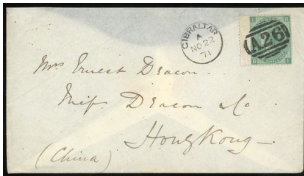 GIBRALTAR
A
NO 22
71
A26
Mrs Ernest Deacon
Messrs Deacon & Co.
Hong Kong
(China)